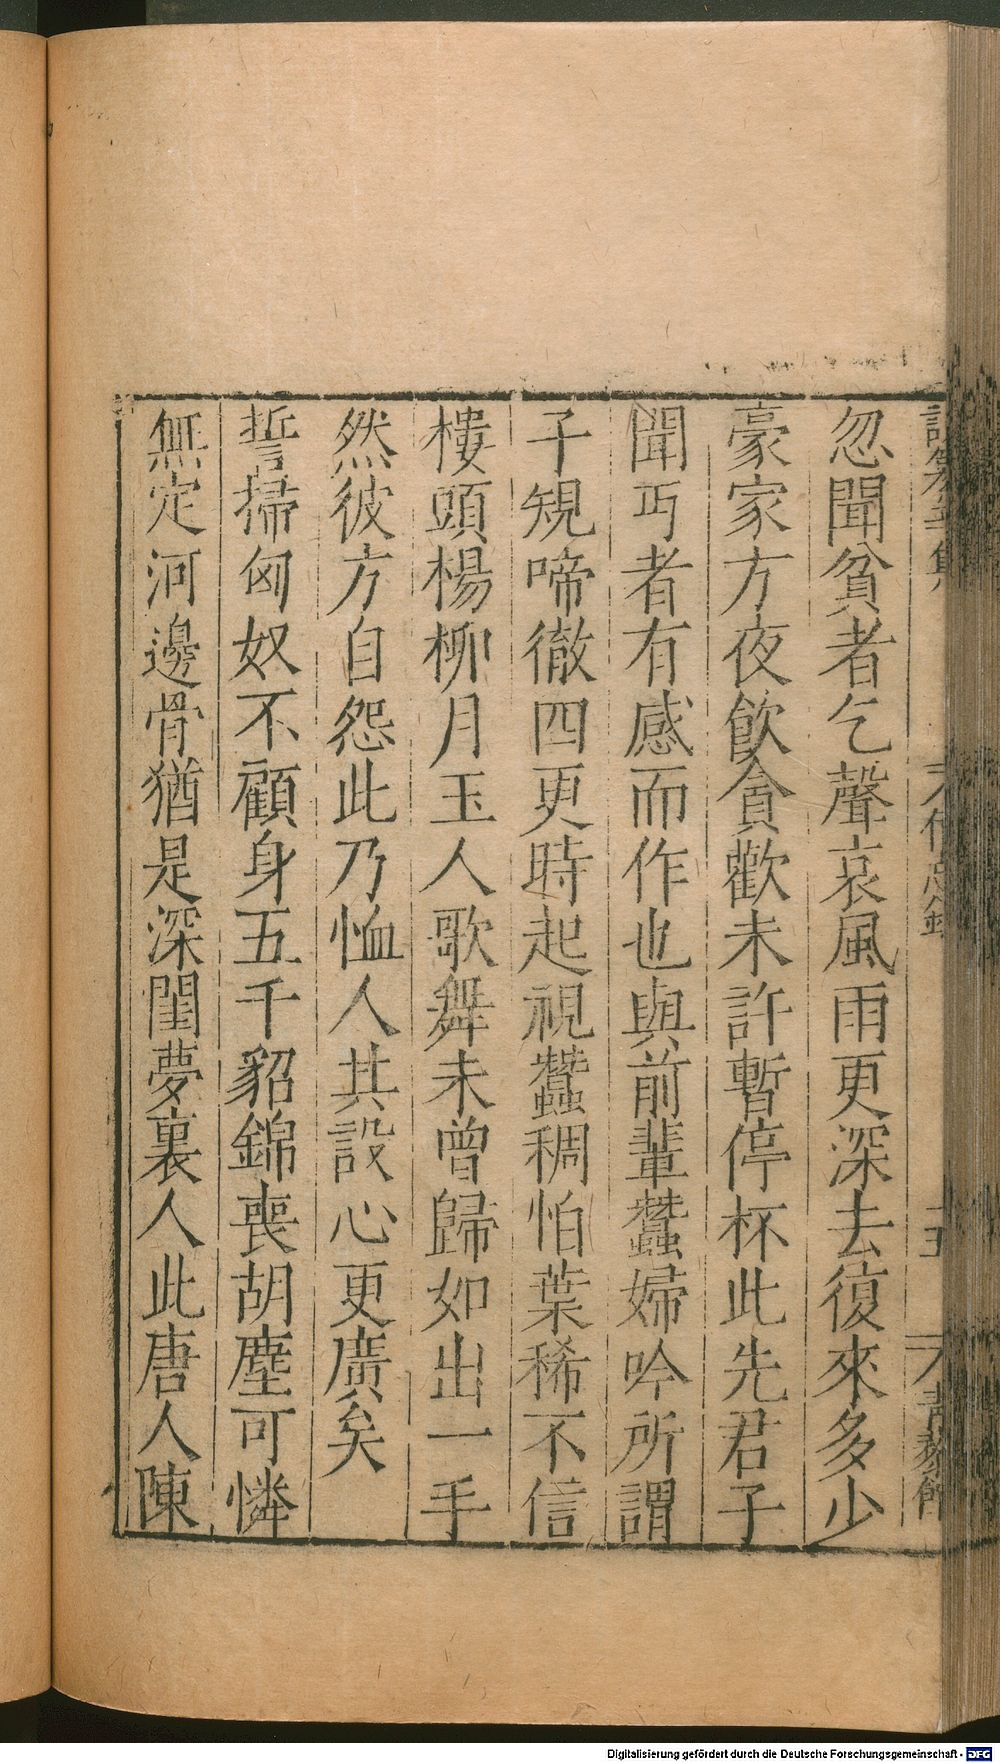 忽聞貧者乞聲哀風雨更深去復來多少
豪家方夜飲貪歡未許暫停杯此先君子
聞丐者有感而作也與前輩蠶婦吟所謂
子規啼徹四更時起視蠶稠怕葉稀不信
樓頭楊柳月玉人歌舞未曾歸如出一手
然彼方自怨此乃恤人其設心更廣矣
誓掃匈奴不顧身五千貂錦喪胡塵可憐
無定河邊骨猶是深閨夢裏人此唐人陳
Digitalisierung gefördert durch die Deutsche Forschungsgemeinschaft - DFG